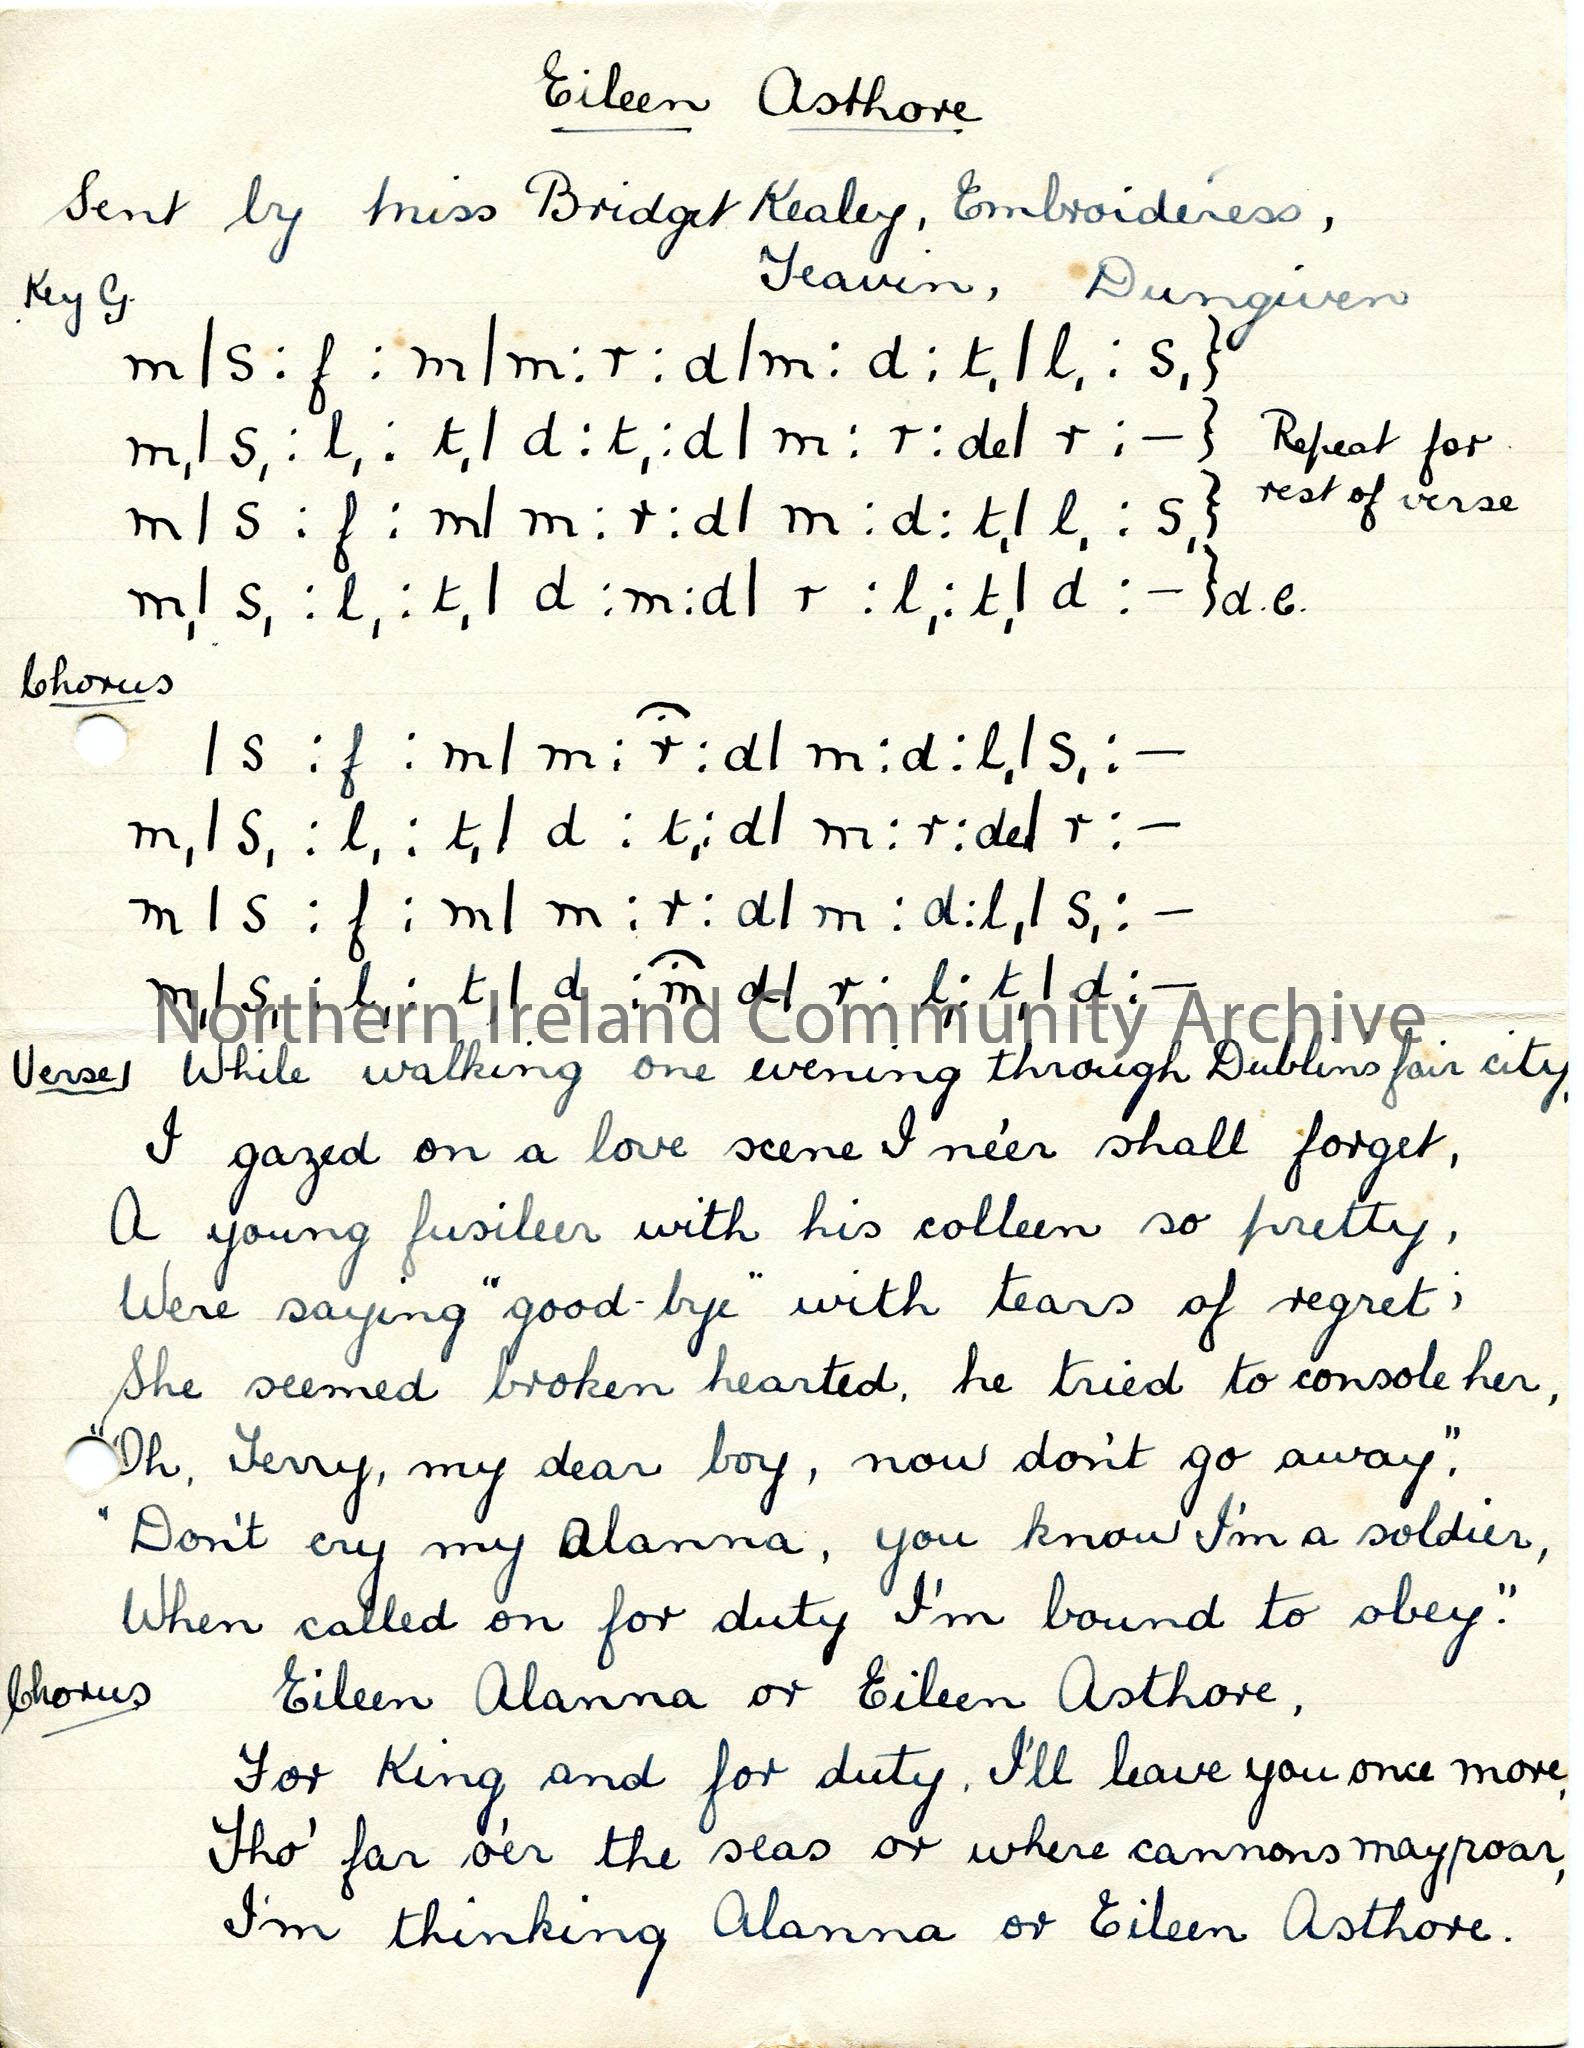 Eileen Asthore
Sent by Miss Bridget Kealey, Embroideress,
Teavin, Dungiven
Key G.
m | s : f : m | m : r : d | m : d : t, | l, : s, }
m, | s, : l, : t, | d : t, : d | m : r : de | r : — } Repeat for
m | s : f : m | m : r : d | m : d : t, | l, : s, } rest of verse
m, | s, : l, : t, | d : m : d | r : l, : t, | d : — } d.c.
Chorus
| s : f : m | m : r : d | m : d : l, | s, : —
m, | s, : l, : t, | d : t, : d | m : r : de | r : —
m | s : f : m | m : r : d | m : d : l, | s, : —
m, | s, : l, : t, | d : m d | r : l, : t, | d : —
Northern Ireland Community Archive
Verse 1 While walking one evening through Dublins fair city,
I gazed on a love scene I ne'er shall forget,
A young fusileer with his colleen so pretty,
Were saying "good-bye" with tears of regret;
She seemed broken hearted, he tried to console her,
"Oh, Terry, my dear boy, now don't go away",
"Don't cry my Alanna, you know I'm a soldier,
When called on for duty I'm bound to obey."
Chorus Eileen Alanna or Eileen Asthore,
For King and for duty, I'll leave you once more,
Tho' far o'er the seas or where cannons may roar,
I'm thinking Alanna or Eileen Asthore.